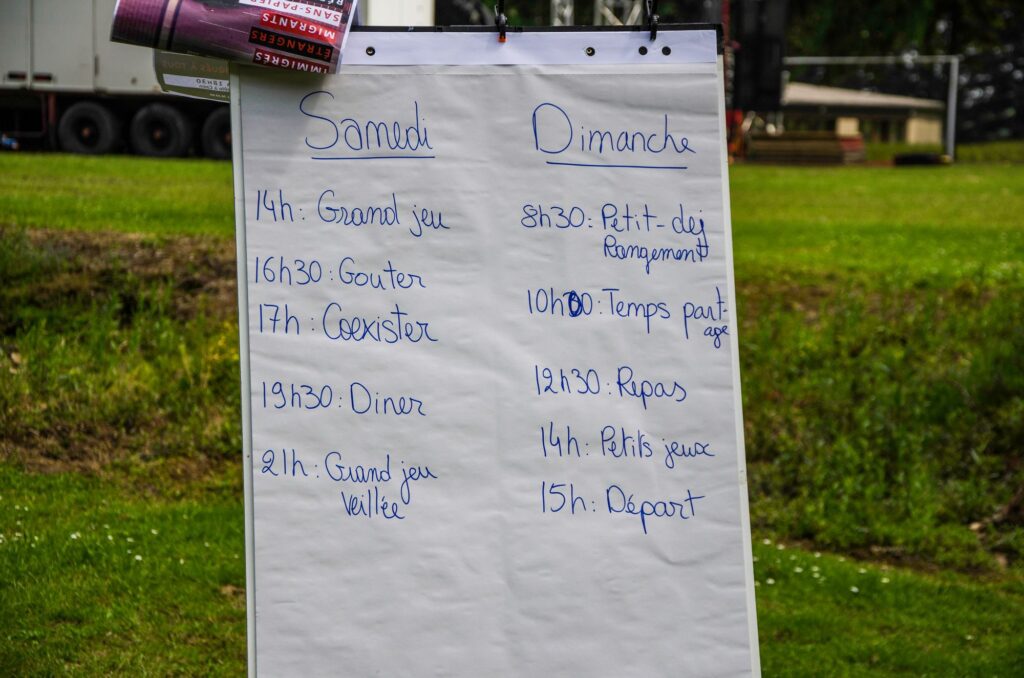 SANS-PAPIER
MIGRANTS
ÉTRANGERS
IMMIGRÉS
Samedi
14h: Grand jeu
16h30: Gouter
17h: Coexister
19h30: Diner
21h: Grand jeu
Veillée
Dimanche
8h30: Petit-dej
Rangement
10h00: Temps part-
age
12h30: Repas
14h: Petits jeux
15h: Départ